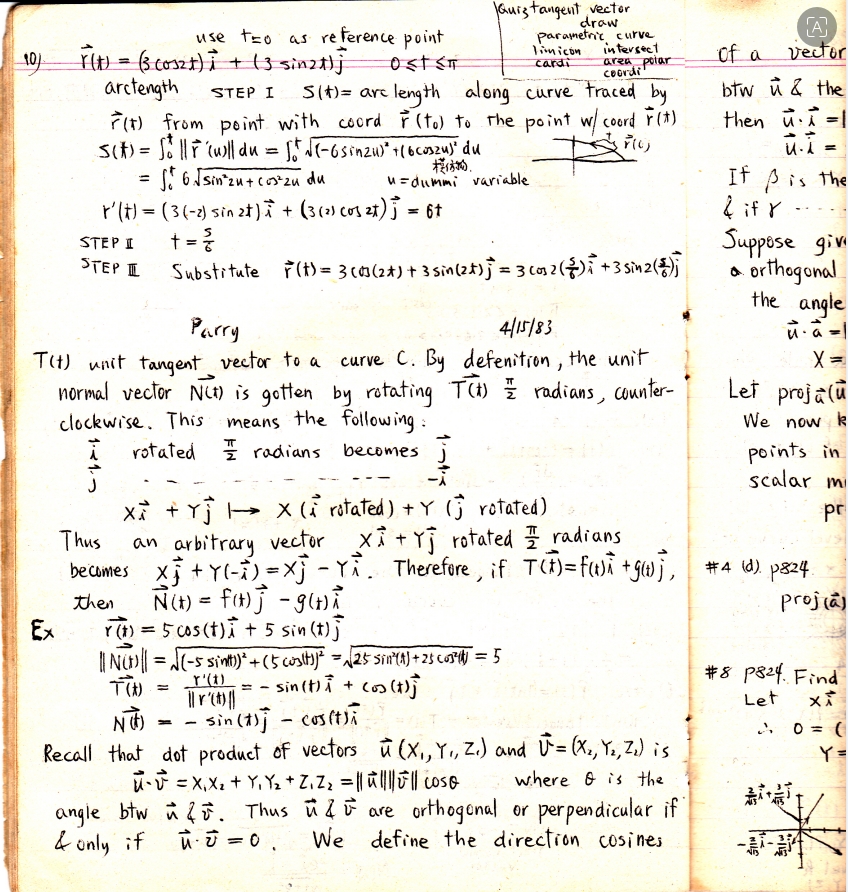 Quiz tangent vector
draw
parametric curve
limicon intersect
cardi area polar
coordi
use t=0 as reference point
10) r⃗(t) = (3 cos2t) i⃗ + (3 sin2t) j⃗ 0≤t≤π
arclength STEP I S(t) = arc length along curve traced by
r⃗(t) from point with coord r⃗(t₀) to the point w/ coord r⃗(t)
S(t) = ∫₀ᵗ ||r⃗'(u)|| du = ∫₀ᵗ √(-6sin2u)² + (6cos2u)² du
r⃗(t)
= ∫₀ᵗ 6√sin²2u + cos²2u du u = dummi variable
r'(t) = (3(-2) sin 2t) i⃗ + (3(2) cos 2t) j⃗ = 6t
STEP II t = 5/6
STEP III Substitute r⃗(t) = 3 cos(2t) + 3 sin(2t) j⃗ = 3 cos 2(5/6) i⃗ + 3 sin 2(5/6) j⃗
Parry 4/15/83
T(t) unit tangent vector to a curve C. By defenition, the unit
normal vector N⃗(t) is gotten by rotating T⃗(t) π/2 radians, counter-
clockwise. This means the following:
i⃗ rotated π/2 radians becomes j⃗
j⃗ - - - - - - - - - - - - - - -i⃗
x i⃗ + Y j⃗ ↦ X (i⃗ rotated) + Y (j⃗ rotated)
Thus an arbitrary vector X i⃗ + Y j⃗ rotated π/2 radians
becomes X j⃗ + Y(-i⃗) = X j⃗ - Y i⃗. Therefore, if T⃗(t) = f(t) i⃗ + g(t) j⃗,
then N⃗(t) = f(t) j⃗ - g(t) i⃗
Ex r⃗(t) = 5 cos(t) i⃗ + 5 sin(t) j⃗
||N⃗(t)|| = √(-5 sin(t))² + (5 cos(t))² = √25 sin²(t) + 25 cos²(t) = 5
T⃗(t) = r'(t)/||r'(t)|| = - sin(t) i⃗ + cos(t) j⃗
N⃗(t) = - sin(t) j⃗ - cos(t) i⃗
Recall that dot product of vectors u⃗ (X₁, Y₁, Z₁) and v⃗ = (X₂, Y₂, Z₂) is
u⃗·v⃗ = X₁X₂ + Y₁Y₂ + Z₁Z₂ = ||u⃗|| ||v⃗|| cosθ where θ is the
angle btw u⃗ & v⃗. Thus u⃗ & v⃗ are orthogonal or perpendicular if
& only if u⃗·v⃗ = 0. We define the direction cosines
of a vector
btw u⃗ & the
then u⃗·i⃗ =
u⃗·j⃗ =
If β is the
& if γ - - - -
Suppose give
a orthogonal
the angle
u⃗·a⃗ =
X =
Let proj a⃗ (u
We now k
points in
scalar m
pr
#4 (d) p824
proj(a⃗)
#8 p824. Find
Let x i⃗
∴ 0 = (
Y =
2/√13 i⃗ + 3/√13 j⃗
-2/√13 i⃗ - 3/√13 j⃗